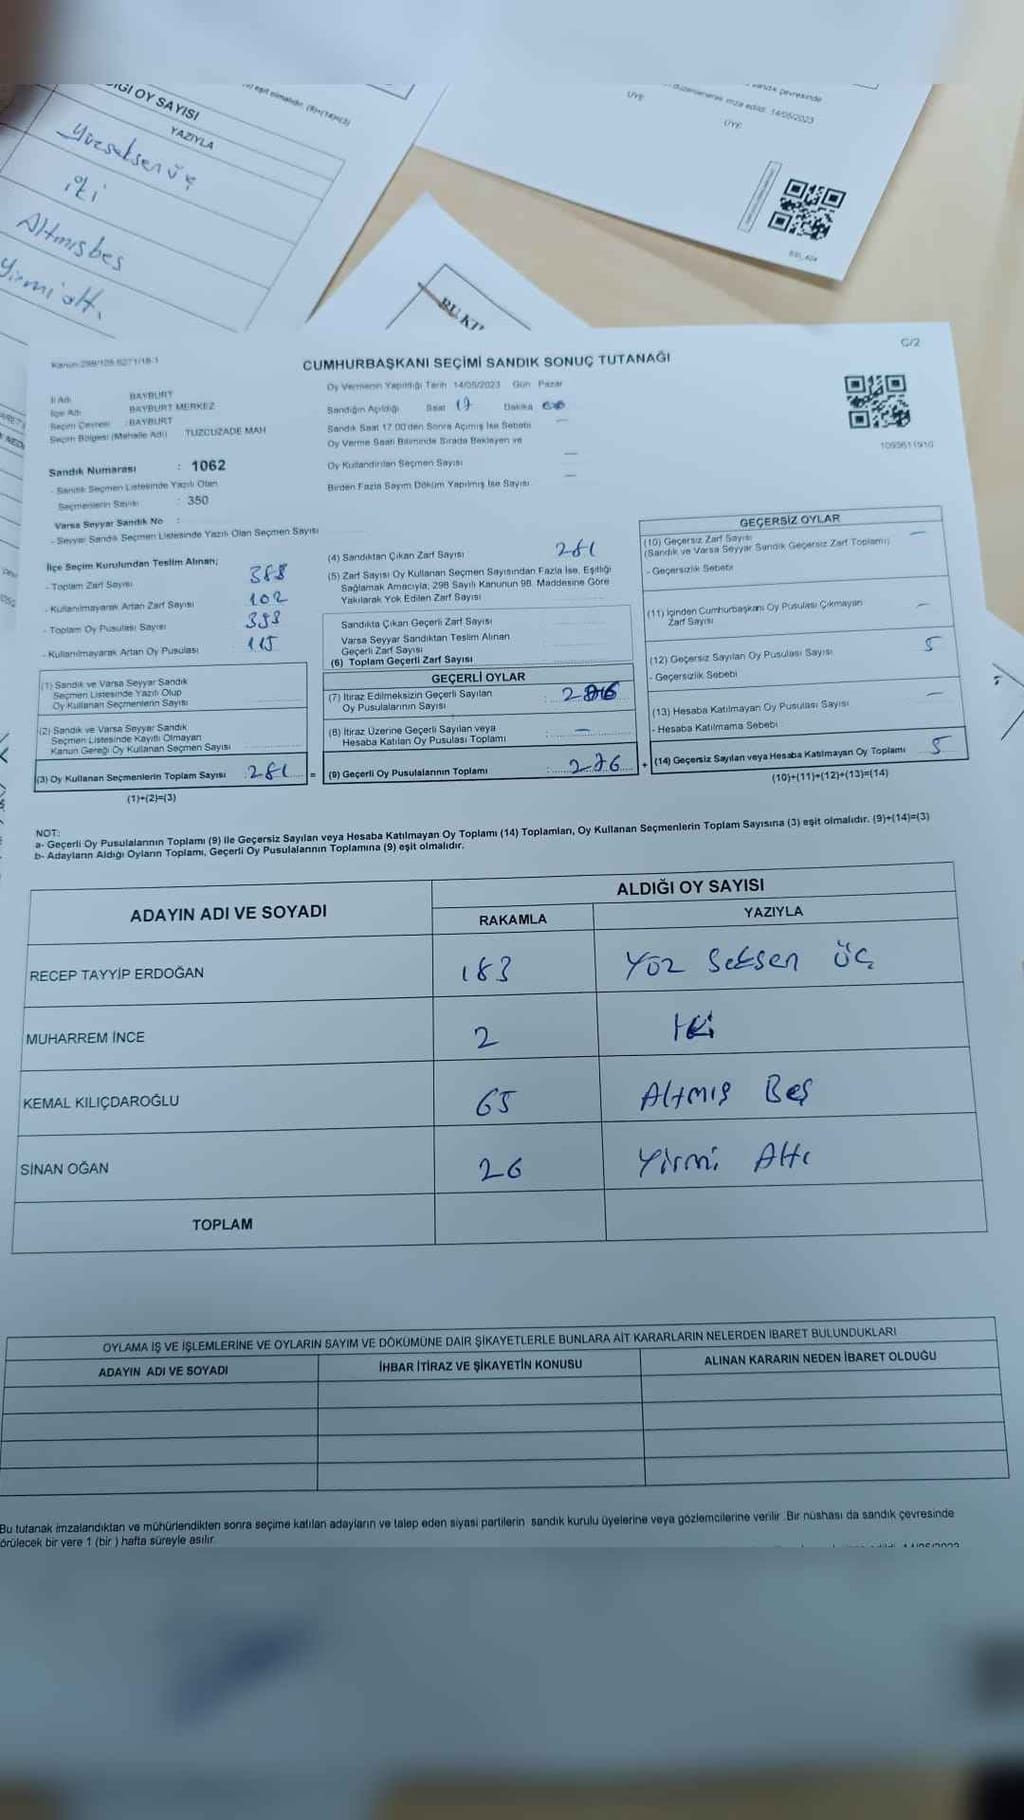 IĞI OY SAYISI
YAZIYLA
Yüzseksen üç
iki
Altmışbeş
Yirmialtı
ÜYE
ÜYE
14/05/2023
BU KT
C/2
CUMHURBAŞKANI SEÇİMİ SANDIK SONUÇ TUTANAĞI
İl Adı : BAYBURT
İlçe Adı : BAYBURT MERKEZ
Seçim Çevresi : BAYBURT
Seçim Bölgesi (Mahalle Adı) TUZCUZADE MAH
Sandık Numarası : 1062
- Sandık Seçmen Listesinde Yazılı Olan
Seçmenlerin Sayısı : 350
Varsa Seyyar Sandık No :
- Seyyar Sandık Seçmen Listesinde Yazılı Olan Seçmen Sayısı
Oy Vermenin Yapıldığı Tarih 14/05/2023 Gün Pazar
Sandığın Açıldığı Saat 17 Dakika
Sandık Saat 17.00'den Sonra Açılmış İse Sebebi
Oy Verme Saati Bitiminde Sırada Bekleyen ve
Oy Kullandırılan Seçmen Sayısı
Birden Fazla Sayım Döküm Yapılmış İse Sayısı
1093611910
İlçe Seçim Kurulundan Teslim Alınan;
- Toplam Zarf Sayısı 383
- Kullanılmayarak Artan Zarf Sayısı 102
- Toplam Oy Pusulası Sayısı
- Kullanılmayarak Artan Oy Pusulası 115
(1) Sandık ve Varsa Seyyar Sandık
Seçmen Listesinde Yazılı Olup
Oy Kullanan Seçmenlerin Sayısı
(2) Sandık ve Varsa Seyyar Sandık
Seçmen Listesinde Kayıtlı Olmayan
Kanun Gereği Oy Kullanan Seçmen Sayısı
(3) Oy Kullanan Seçmenlerin Toplam Sayısı : 281 =
(1)+(2)=(3)
(4) Sandıktan Çıkan Zarf Sayısı 281
(5) Zarf Sayısı Oy Kullanan Seçmen Sayısından Fazla İse, Eşitliği
Sağlamak Amacıyla, 298 Sayılı Kanunun 98. Maddesine Göre
Yakılarak Yok Edilen Zarf Sayısı
Sandıkta Çıkan Geçerli Zarf Sayısı
Varsa Seyyar Sandıktan Teslim Alınan
Geçerli Zarf Sayısı
(6) Toplam Geçerli Zarf Sayısı
GEÇERLİ OYLAR
(7) İtiraz Edilmeksizin Geçerli Sayılan
Oy Pusulalarının Sayısı :
(8) İtiraz Üzerine Geçerli Sayılan veya
Hesaba Katılan Oy Pusulası Toplamı : —
(9) Geçerli Oy Pusulalarının Toplamı : 276 +
GEÇERSİZ OYLAR
(10) Geçersiz Zarf Sayısı —
(Sandık ve Varsa Seyyar Sandık Geçersiz Zarf Toplamı)
- Geçersizlik Sebebi
(11) İçinden Cumhurbaşkanı Oy Pusulası Çıkmayan —
Zarf Sayısı
(12) Geçersiz Sayılan Oy Pusulası Sayısı 5
- Geçersizlik Sebebi
(13) Hesaba Katılmayan Oy Pusulası Sayısı —
- Hesaba Katılmama Sebebi
(14) Geçersiz Sayılan veya Hesaba Katılmayan Oy Toplamı 5
(10)+(11)+(12)+(13)=(14)
NOT:
a- Geçerli Oy Pusulalarının Toplamı (9) ile Geçersiz Sayılan veya Hesaba Katılmayan Oy Toplamı (14) Toplamları, Oy Kullanan Seçmenlerin Toplam Sayısına (3) eşit olmalıdır. (9)+(14)=(3)
b- Adayların Aldığı Oyların Toplamı, Geçerli Oy Pusulalarının Toplamına (9) eşit olmalıdır.
ADAYIN ADI VE SOYADI
ALDIĞI OY SAYISI
RAKAMLA YAZIYLA
RECEP TAYYİP ERDOĞAN 183 Yüz Seksen Üç
MUHARREM İNCE 2 İki
KEMAL KILIÇDAROĞLU 65 Altmış Beş
SİNAN OĞAN 26 Yirmi Altı
TOPLAM
OYLAMA İŞ VE İŞLEMLERİNE VE OYLARIN SAYIM VE DÖKÜMÜNE DAİR ŞİKAYETLERLE BUNLARA AİT KARARLARIN NELERDEN İBARET BULUNDUKLARI
ADAYIN ADI VE SOYADI İHBAR İTİRAZ VE ŞİKAYETİN KONUSU ALINAN KARARIN NEDEN İBARET OLDUĞU
Bu tutanak imzalandıktan ve mühürlendikten sonra seçime katılan adayların ve talep eden siyasi partilerin sandık kurulu üyelerine veya gözlemcilerine verilir .Bir nüshası da sandık çevresinde
örülecek bir yere 1 (bir ) hafta süreyle asılır.